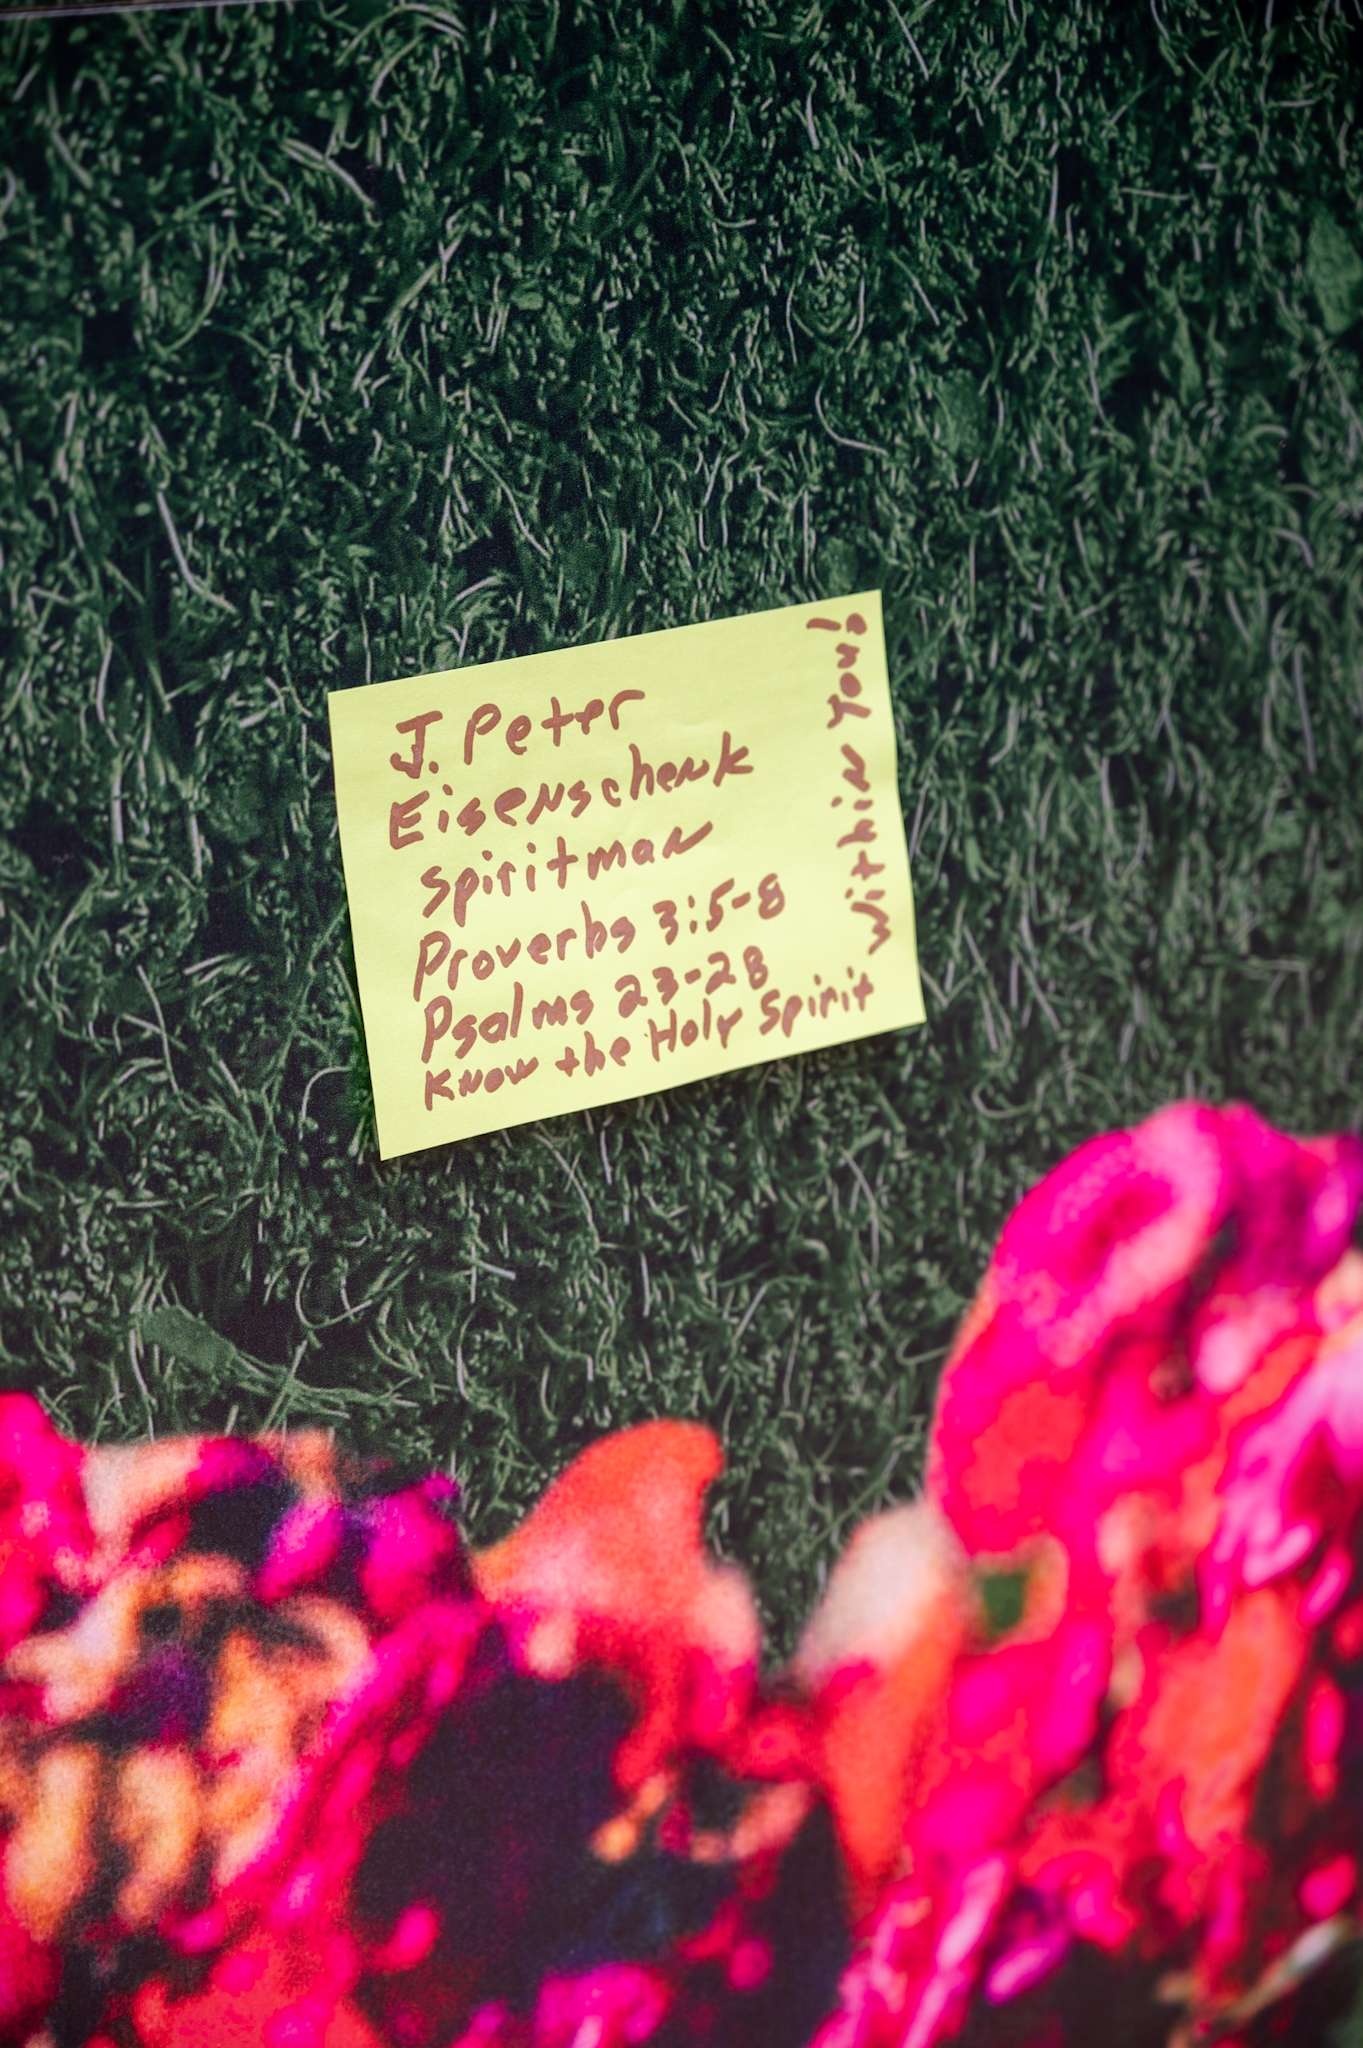 J. Peter
Eisenschenk
Spiritman
Proverbs 3:5-8
Psalms 23-28
Know the Holy Spirit
within You!